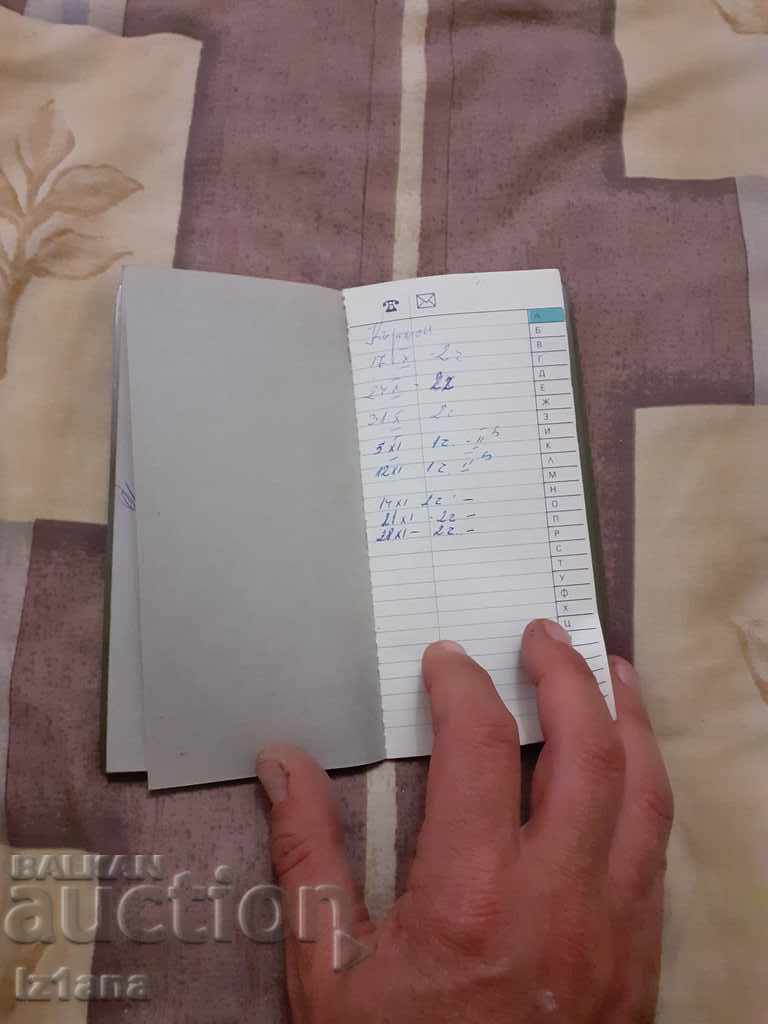 17 X 2ч
24 X - 2ч
31 X 2ч
5 XI 1ч. - II
12 XI 1ч II
14 XI 2ч -
21 XI - 2ч -
28 XI - 2ч -
А
Б
В
Г
Д
Е
Ж
З
И
К
Л
М
Н
О
П
Р
С
Т
У
Ф
Х
Ц
BALKAN
auction
Iz1ana